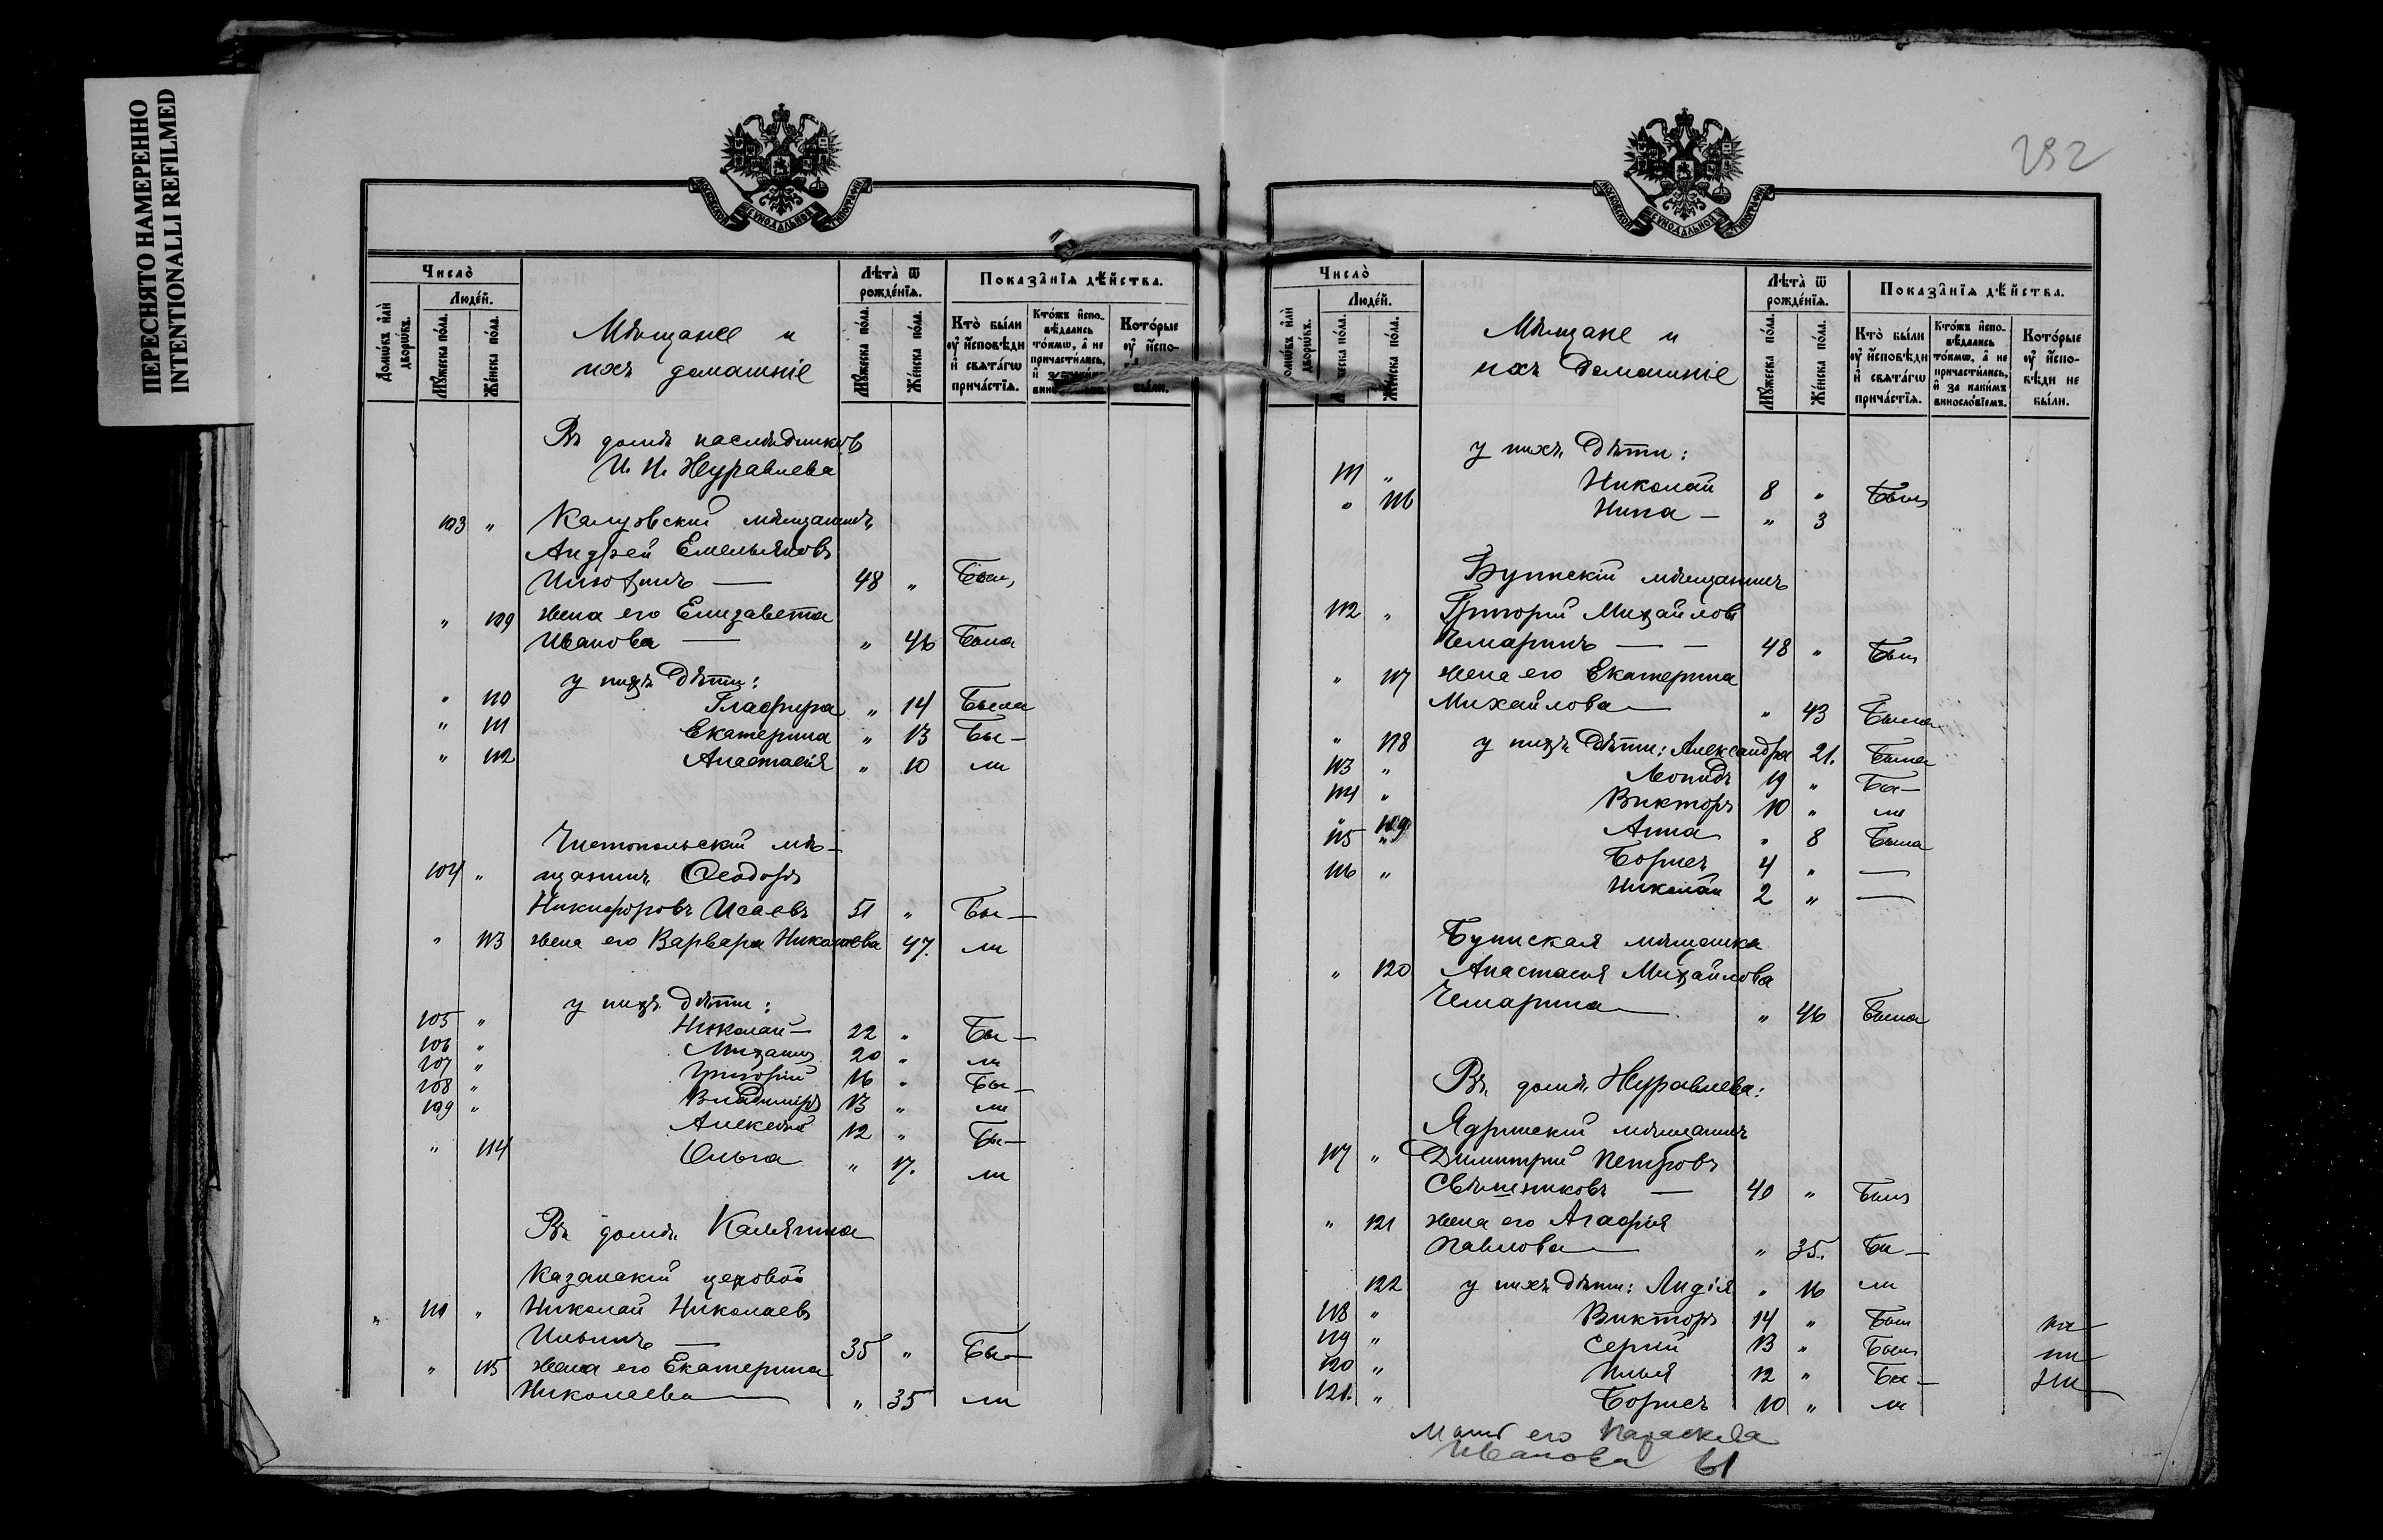 ПЕРЕСНЯТО НАМЕРЕННО
INTENTIONALLI REFILMED
МОСКОВСКОЙ СУНОДАЛЬНОЙ ТИПОГРАФІИ
Число̀
Домѡ́въ и҆лѝ дворѡ́въ.
Люде́й.
Мꙋ́жеска по́ла.
Же́нска по́ла.
Мѣщане и
ихъ домашніе
Лѣта̀ ѿ рожде́нїѧ.
Мꙋ́жеска по́ла.
Же́нска по́ла.
Показа̑нїѧ дѣ́йства.
Кто̀ бы́ли ᲂу҆ и҆сповѣ́ди и҆ свѧта́гѡ прича́стїѧ.
Кто́жъ и҆сповѣ́дались то́кмѡ, а҆ не причасти́лись,
Кото́рые ᲂу҆ и҆спо-
бы́ли.
Въ домѣ наслѣдниковъ
И. И. Журавлева
103 „ Калузовскій мѣщанинъ
Андрей Емельяновъ
Илюхинъ — 48 „ Былъ
„ 109 жена его Елизавета
Иванова — „ 46 Была
у нихъ дѣти:
„ 110 Глафира „ 14 Была
„ 111 Екатерина „ 13 Бы-
„ 112 Анастасія „ 10 ли
Чистопольскій мѣ-
104 „ щанинъ Ѳеодоръ
Никифоровъ Исаевъ 51 „ Бы-
„ 113 жена его Варвара Николаева 47. ли
у нихъ дѣти:
105 „ Николай — 22 „ Бы-
106 „ Михаилъ 20 „ ли
107 „ Григорій 16 „ Бы-
108 „ Владиміръ 13 „ ли
109 „ Алексѣй 12 „ Бы-
„ 114 Ольга „ 17. ли
Въ домѣ Калягина
Казанскій цеховой
„ 110 „ Николай Николаевъ
Ильинъ — 35 „ Бы-
„ 115 жена его Екатерина
Николаева — „ 35 ли
292
МОСКОВСКОЙ СУНОДАЛЬНОЙ ТИПОГРАФІИ
Число̀
домѡ́въ и҆лѝ дворѡ́въ.
Люде́й.
Же́нска по́ла.
Мѣщане и
ихъ домашніе
Лѣта̀ ѿ рожде́нїѧ.
Мꙋ́жеска по́ла.
Же́нска по́ла.
Показа̑нїѧ дѣ́йства.
Кто̀ бы́ли ᲂу҆ и҆сповѣ́ди и҆ свѧта́гѡ прича́стїѧ.
Кто́жъ и҆сповѣ́дались то́кмѡ, а҆ не причасти́лись, и҆ за каки́мъ виносло́вїемъ.
Кото́рые ᲂу҆ и҆сповѣ́ди не бы́ли.
у нихъ дѣти:
111 „ Николай 8 „ Былъ
„ 116 Нина — „ 3
Буинскій мѣщанинъ
112 „ Григорій Михайловъ
Чемаринъ — — 48 „ Былъ
„ 117 жена его Екатерина
Михайлова — „ 43 Была
„ 118 у нихъ дѣти: Александра 21. Была
113 „ Леонидъ 19 „ Бы-
114 „ Викторъ 10 „ ли
„ 119 Анна „ 8 Была
115 „ Борисъ 4 „ —
116 „ Николай 2 „ —
Буинская мѣщанка
„ 120 Анастасія Михайлова
Чемарина — „ 46 Была
Въ домѣ Журавлева:
Ядринскій мѣщанинъ
117 „ Димитрій Петровъ
Свѣшниковъ — 40 „ Былъ
„ 121 жена его Агафія
Павлова — „ 35. Бы-
122 у нихъ дѣти: Лидія „ 16 ли
118 „ Викторъ 14 „ Былъ
119 „ Сергій 13 „ Былъ
120 „ Илья 12 „ Бы-
121. „ Борисъ 10 „ ли
Мать его Параскева
Иванова 61